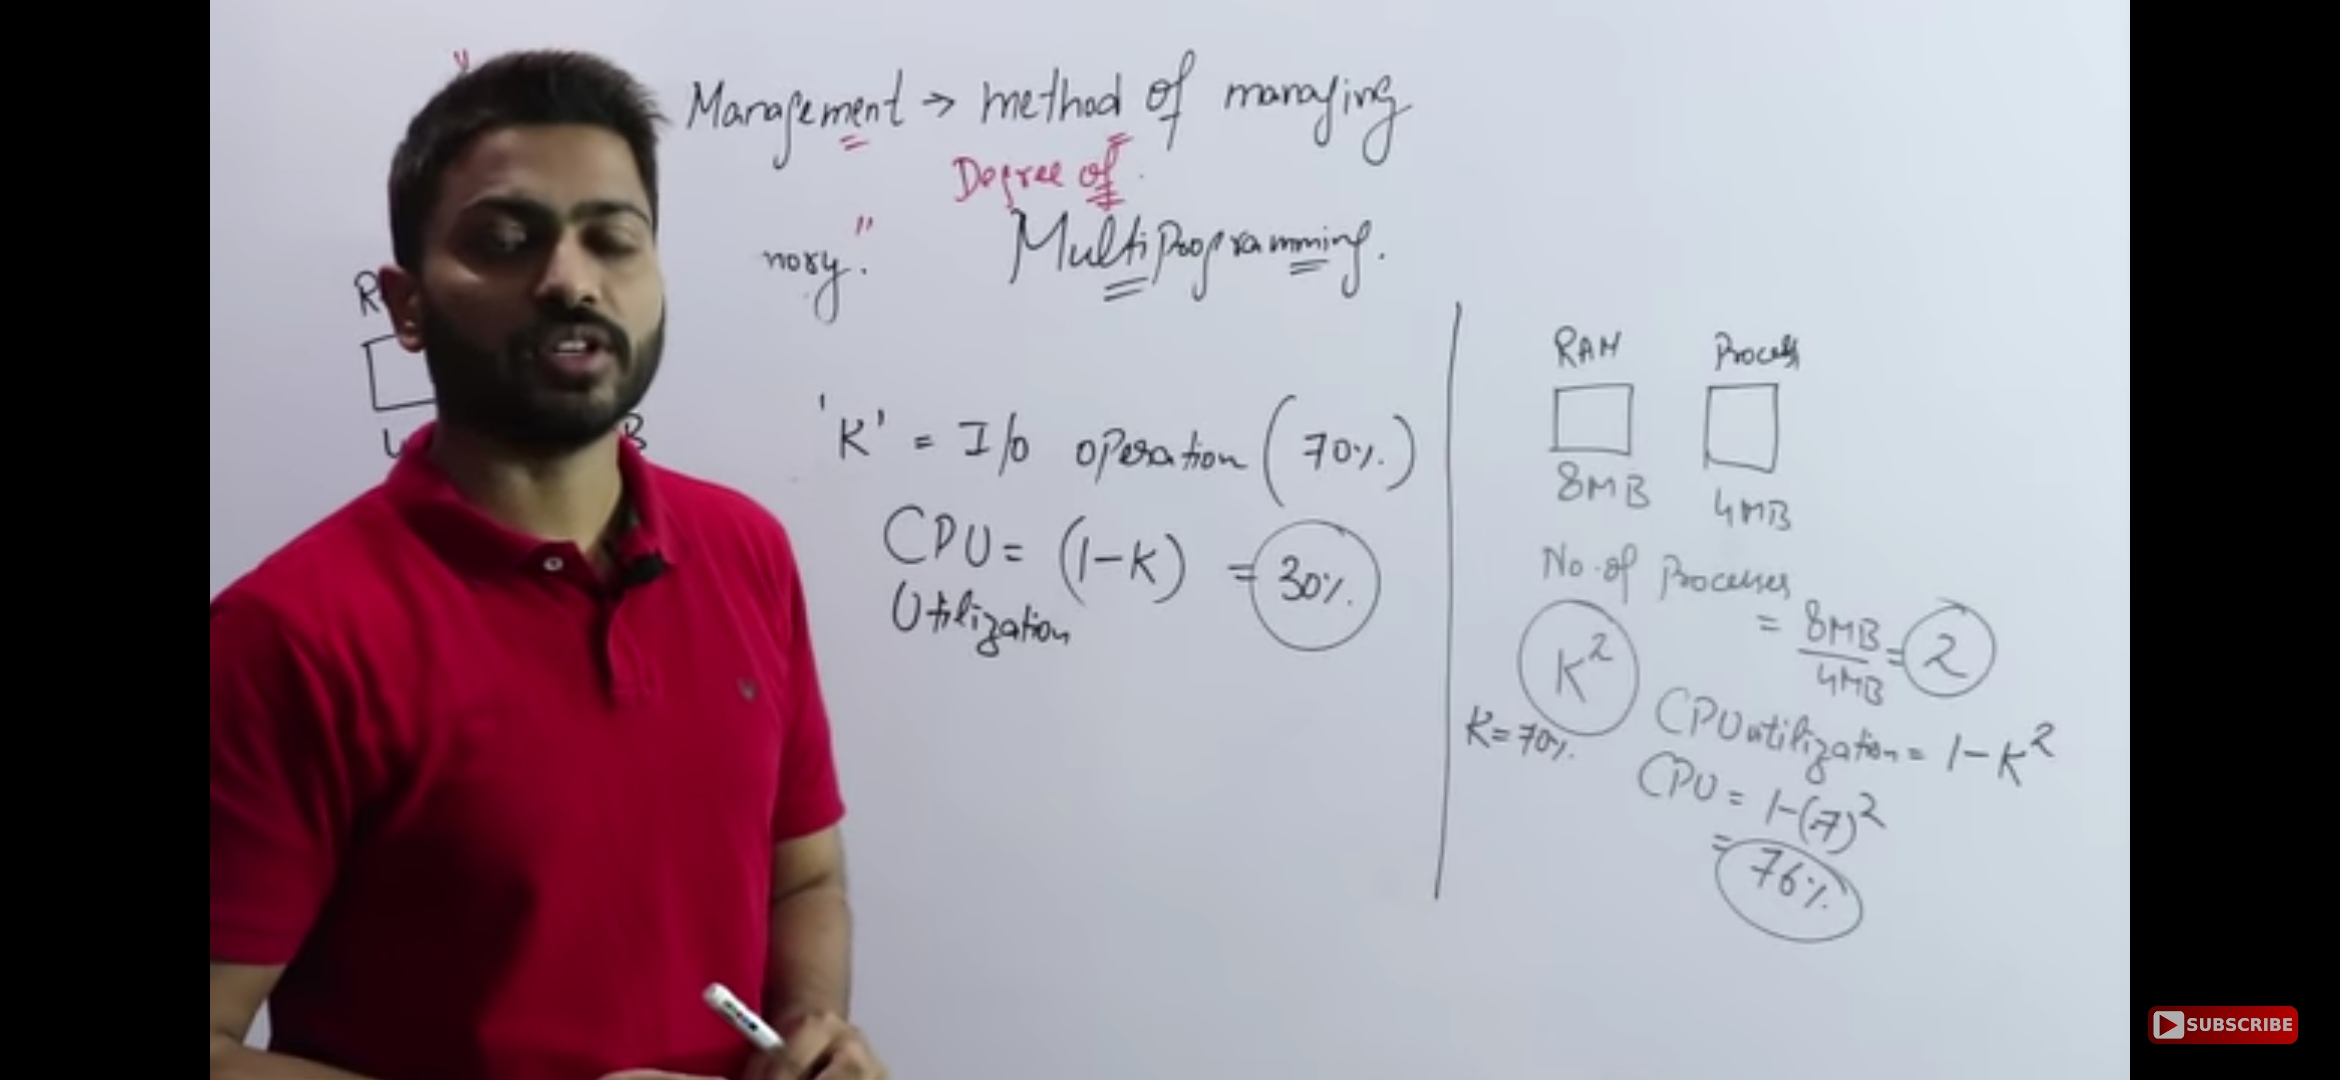 "
Management → method of managing
Degree of
nory." Multiprogramming.
'K' = I/O operation (70%.)
CPU = (1-K) = 30%.
Utilization
RAM Process
8MB 4MB
No. of Processes
= 8MB/4MB = 2
K²
K=70%.
CPU utilization = 1-K²
CPU = 1-(.7)²
= 76%.
SUBSCRIBE